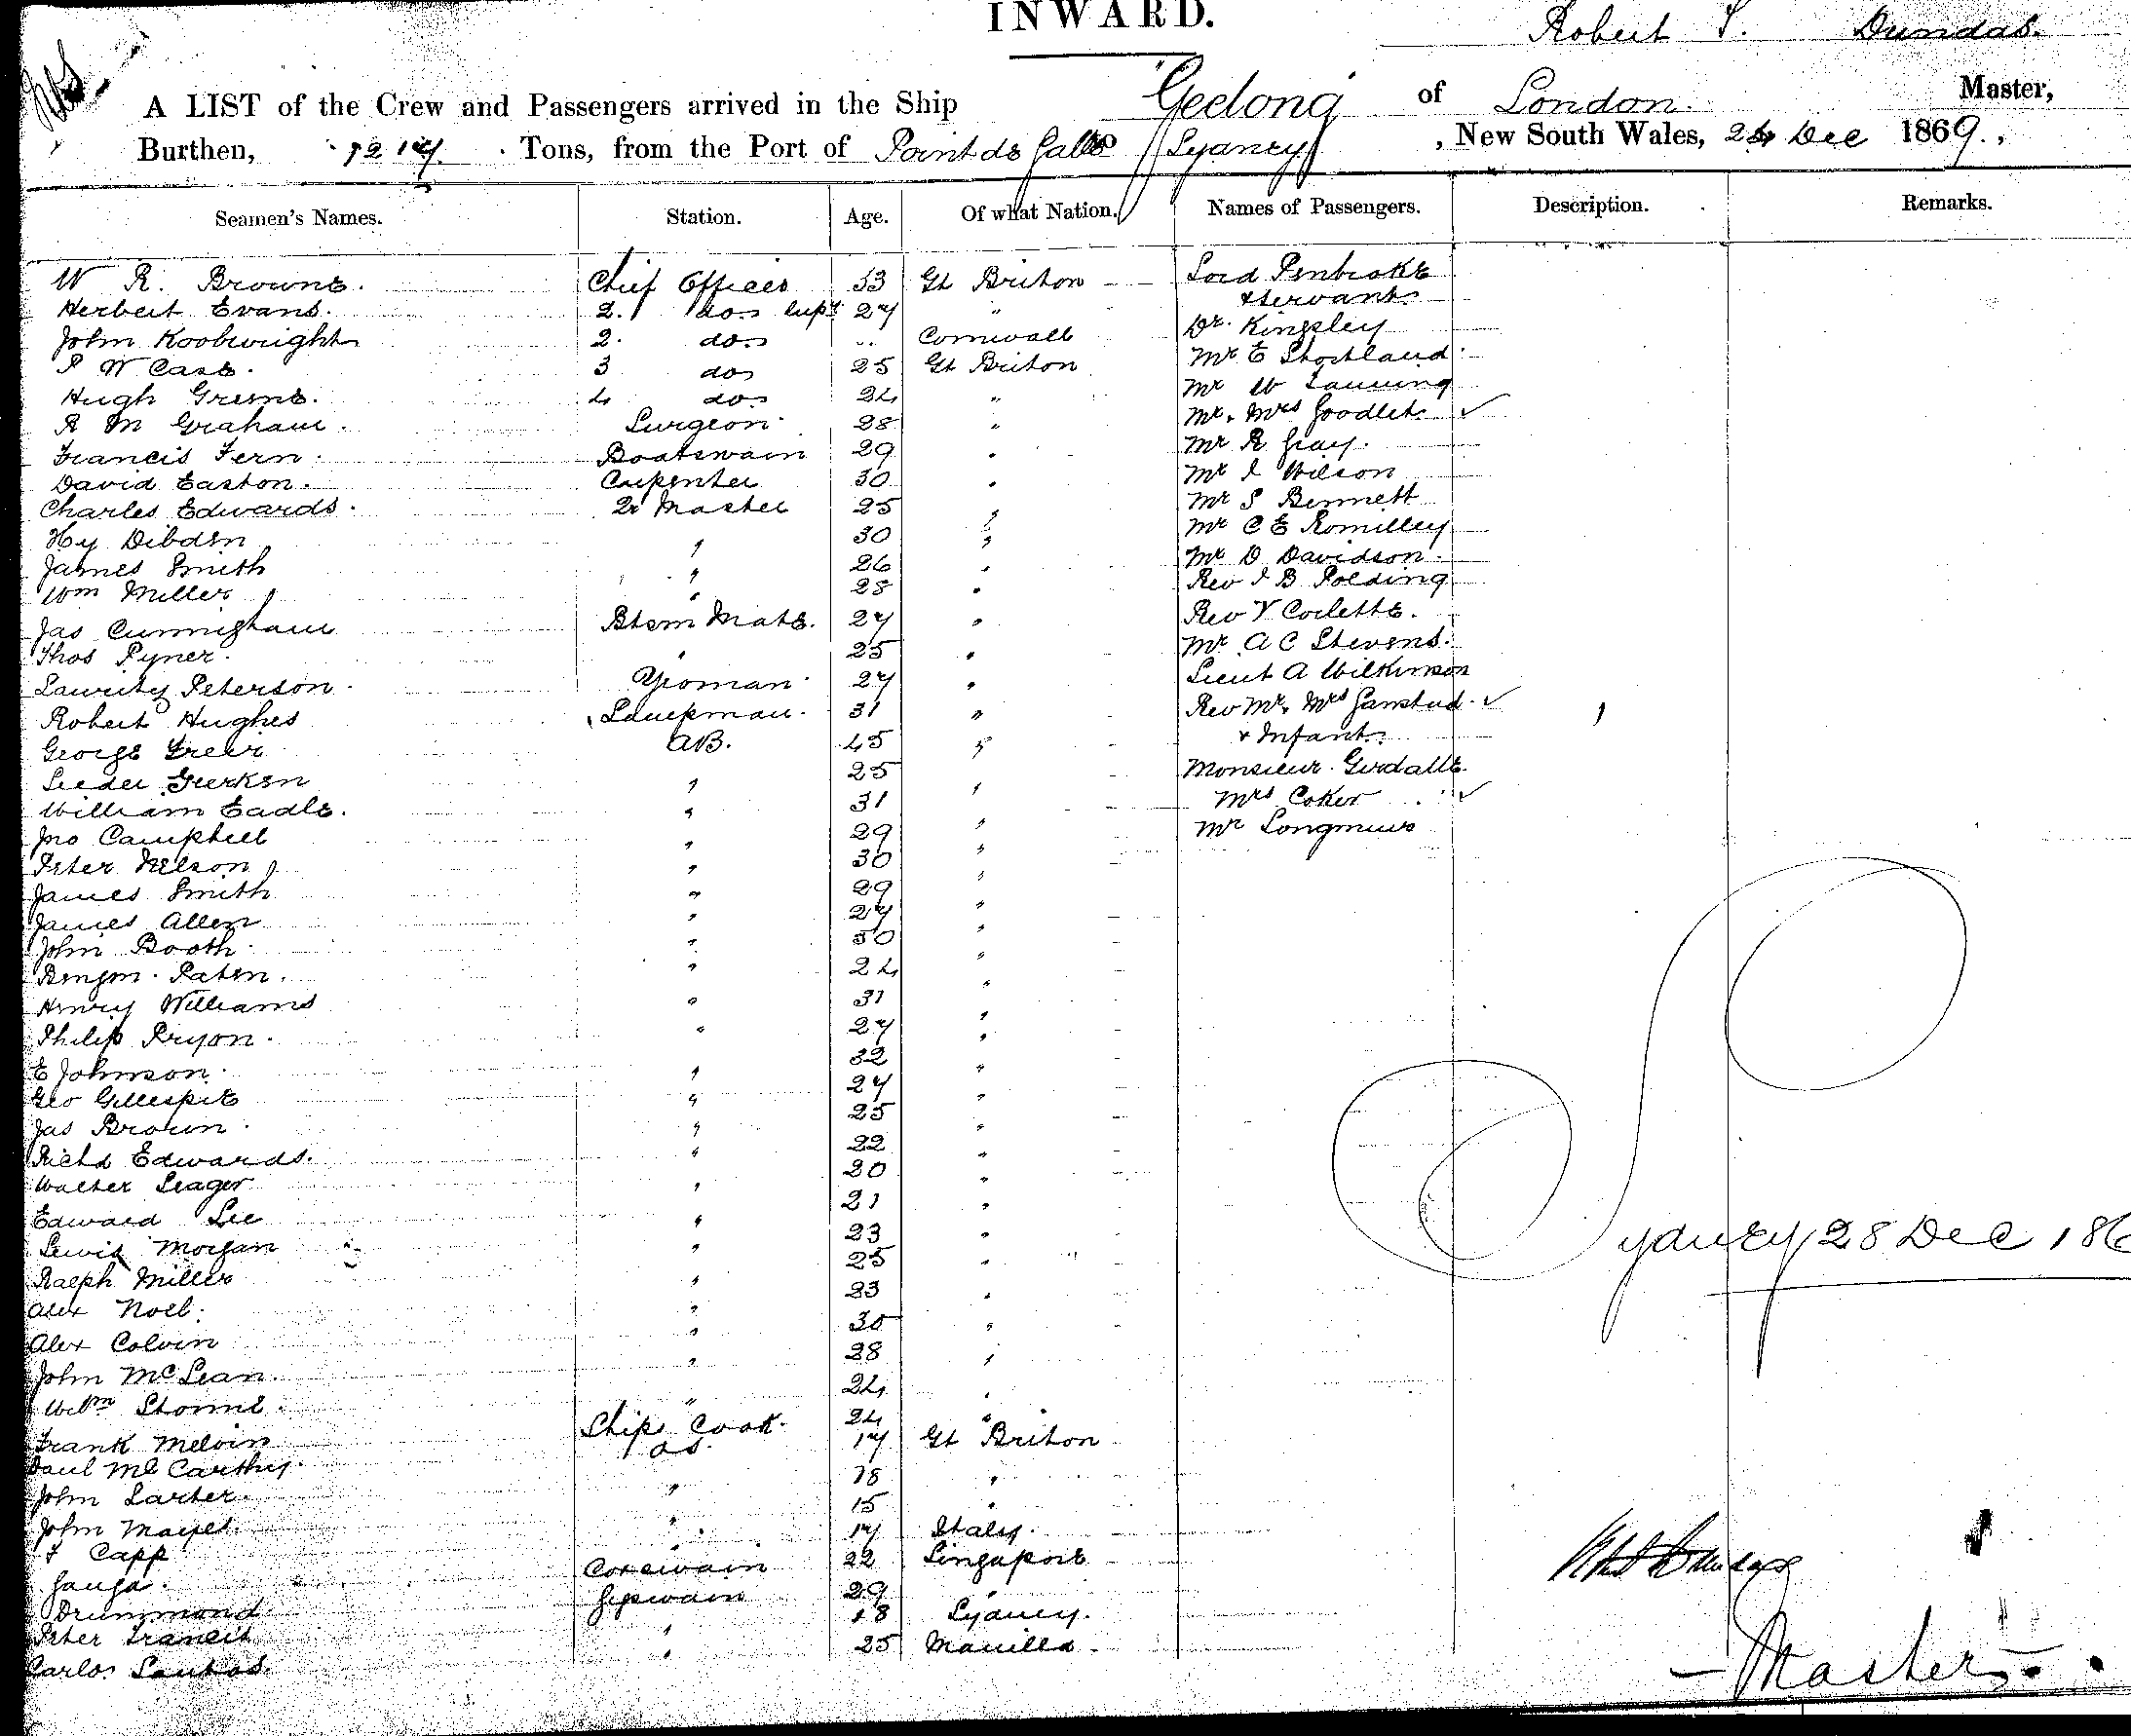 INWARD.
Robert T. Dundas.
A LIST of the Crew and Passengers arrived in the Ship Geelong of London. Master,
Burthen, Tons, from the Port of Point de Galle Sydney, New South Wales, 24 Dec 1869.,
Seamen's Names. Station. Age. Of what Nation. Names of Passengers. Description. Remarks.
W R. Browne. Chief Officer 33 Gt Briton Lord Pembroke
& Servant
Herbert Evans. 2. do 27 "
John 2. do .. Cornwall Dr. Kingsley
P W Case. 3 do 25 Gt Briton Mr E Shortland
Hugh Greene. 4 do 24 " Mr W Lanning
A M Graham. Surgeon 28 " Mr & Mrs Goodlet ✓
Francis Fern. Boatswain 29 " Mr R Gray.
David Easton. Carpenter 30 " Mr I Wilson
Charles Edwards. Qr Master 25 " Mr S Bennett
Hy Dibden " 30 " Mr C E Romilley
James Smith " 26 " Mr D Davidson.
Wm Miller " 28 " Rev J B Polding
Jas Cunnigham Btsm Mate. 27 " Rev V Corlette.
Thos Pyner. " 25 " Mr A C Stevens.
Lauritz Peterson. Yeoman 27 " Lieut A Wilkinson
Robert Hughes Lampman. 31 " Rev Mr & Mrs ✓
George Greer AB. 45 " & Infant
Gerken " 25 " Monsieur
William Eadle. " 31 " Mrs Coker ✓
Jno Campbell " 29 " Mr Longmuir
Peter Nelson " 30 "
James Smith " 29 "
James Allen " 27 "
John Booth " 30 "
Bengm. Paten. " 24 "
Henry Williams " 31 "
Philip Pryon. " 27 "
E Johnson. 32 "
Geo Gillespie " 27 "
Jas Brown " 25 "
Richd Edwards. " 22 "
Walter Seager " 20 "
Edward Lee " 21 "
Lewis Morgan " 23 "
Ralph Miller " 25 "
Alex Noel. " 23 "
Alex Colvin " 30 "
John McLean. " 28 "
Willm " 24 "
Frank Melvin Ships Cook. 24 "
Paul McCarthy os. 17 Gt Briton
John Larter. " 18 "
John Mayes. " 15 "
F Capp " 17 Italy.
Ganga. Coxswain 22 Singapore
Drummond 29 "
Peter Francis " 18 Sydney.
Carlos Santos. " 25 Manilla
Sydney 28 Dec 186
Master